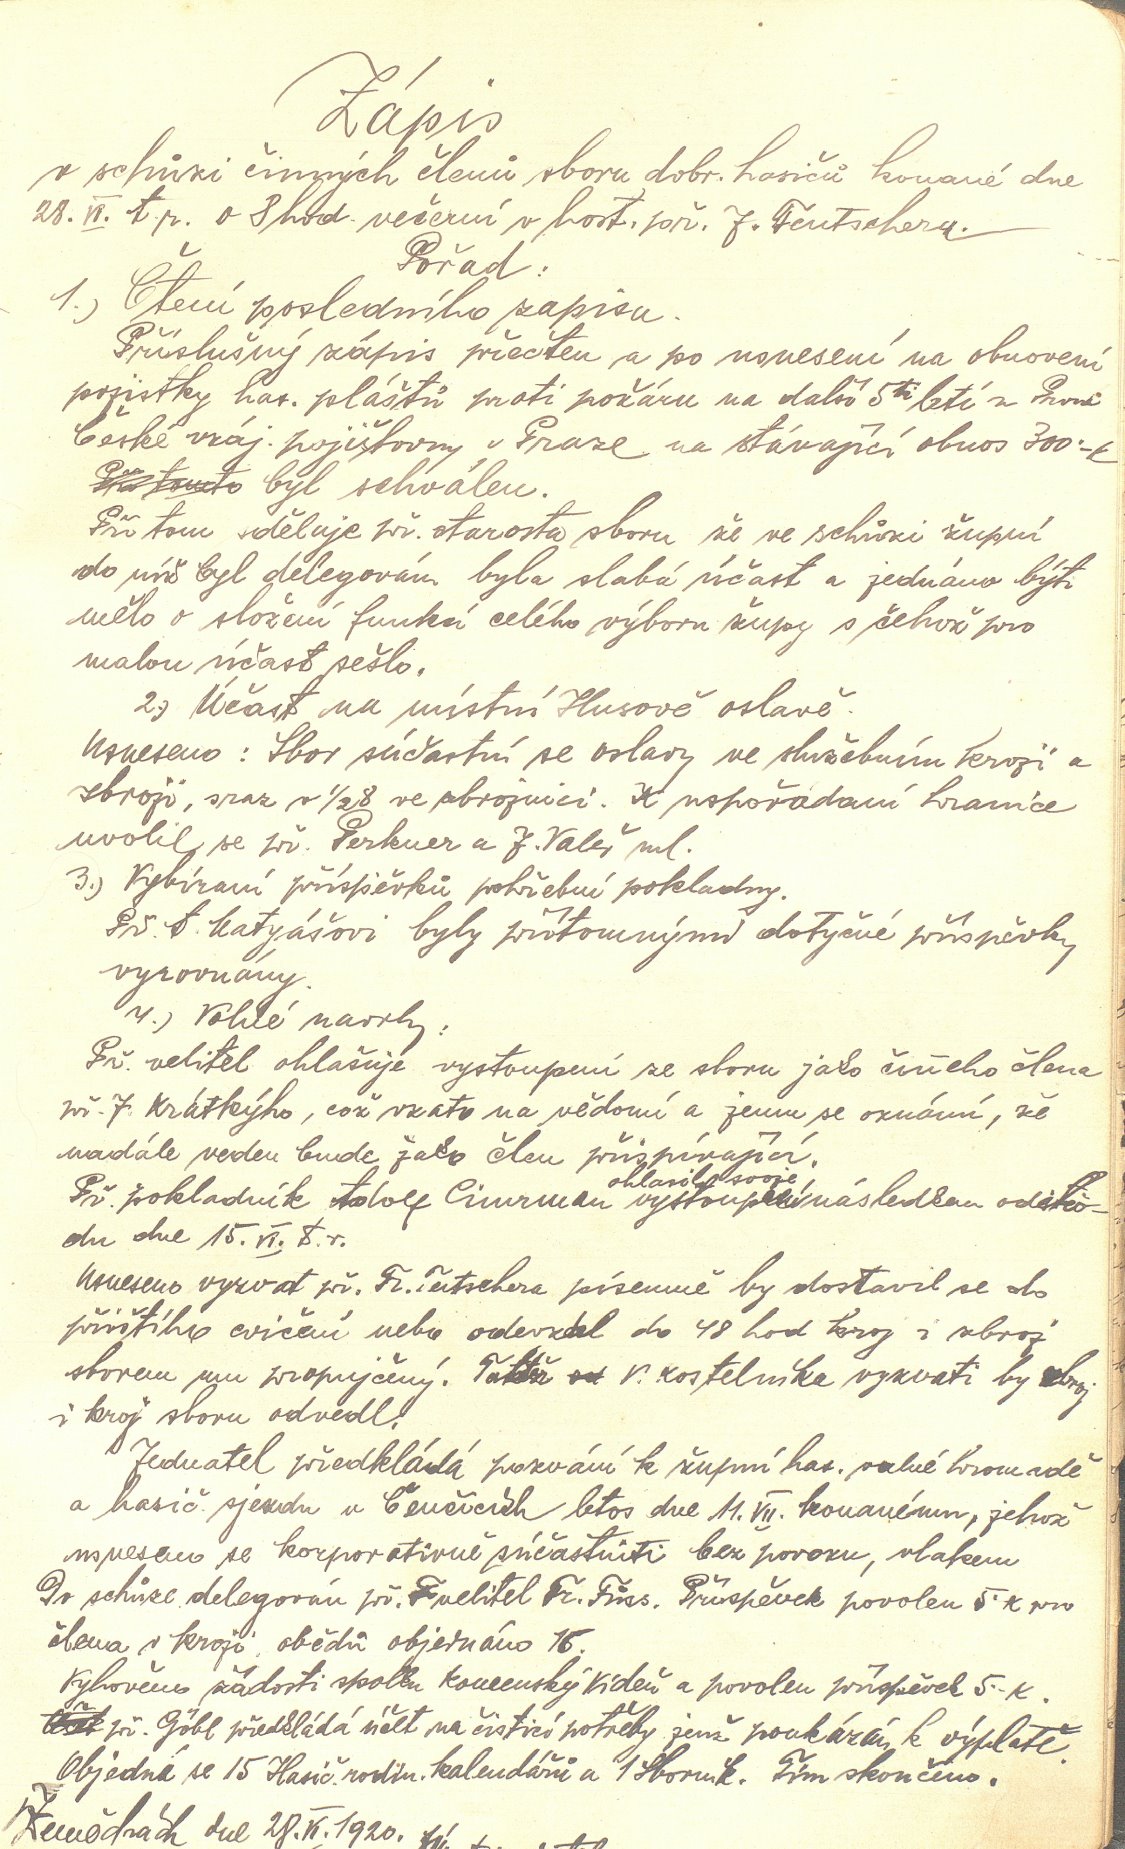 Zápis
v schůzi činných členů sboru dobr. hasičů konané dne
28. VI. t. r. o 8 hod. večerní v host. př. J. Teutschera.
Pořad:
1.) Čtení posledního zápisu.
Příslušný zápis přečten a po usnesení na obnovení
pojistky has. pláštů proti požáru na další 5ti letí u První
České vzáj. pojišťovny v Praze na stávající obnos 300·-K
byl schválen.
Při tom sděluje př. starosta sboru že ve schůzi župní
do níž byl delegován byla slabá účast a jednáno býti
mělo o složení funkcí celého výboru župy s čehož pro
malou účast sešlo.
2.) Účast na místní Husově oslavě.
Usneseno: Sbor súčastní se oslavy ve služebním kroji a
zbroji, sraz v 1/28 ve zbrojnici. K uspořádaní hranice
uvolil se př. Perkner a J. Valeš ml.
3.) Vybíraní příspěvků pohřební pokladny.
Př. t. Matyášovi byly přítomnými dotyčné příspěvky
vyrovnány.
4.) Volné navrhy:
Př. velitel ohlašuje vystoupení ze sboru jako čiňeho člena
př. J. Krátkýho, což vzato na vědomí a jemu se oznámí, že
nadále veden bude jako člen přispívající.
ohlasil svoje
Př. pokladník Adolf Cimrman vystoupení následkem odcho-
du dne 15. VI. t. r.
Usneseno vyzvat př. Fr. Teutschera písemně by dostavil se do
příštího cvičení nebo odevzdal do 48 hod kroj i zbroj
sborem mu propujčený. Taktéž V. Kostelníka vyzvati by zbroj
i kroj sboru odvedl.
Jednatel předkládá pozvání k župní has. valné hromadě
a hasič. sjezdu v Čenčicích letos dne 11. VII. konanému, jehož
usneseno se korporativně súčastniti bez povozu, vlakem
Do schůze delegován př. velitel Fr. Füss. Příspěvek povolen 5·-K pro
člena v kroji, obědů objednáno 15.
Vyhověno žádosti spolku Komenský Vídeň a povolen příspěvek 5·-K.
př. Göbl předkládá účet na čistící potřeby jenž poukázán k výplatě.
Objedná se 15 Hasič. rodin. kalendářů a 1 Sborník. Tím skončeno.
dne 28. VI. 1920.